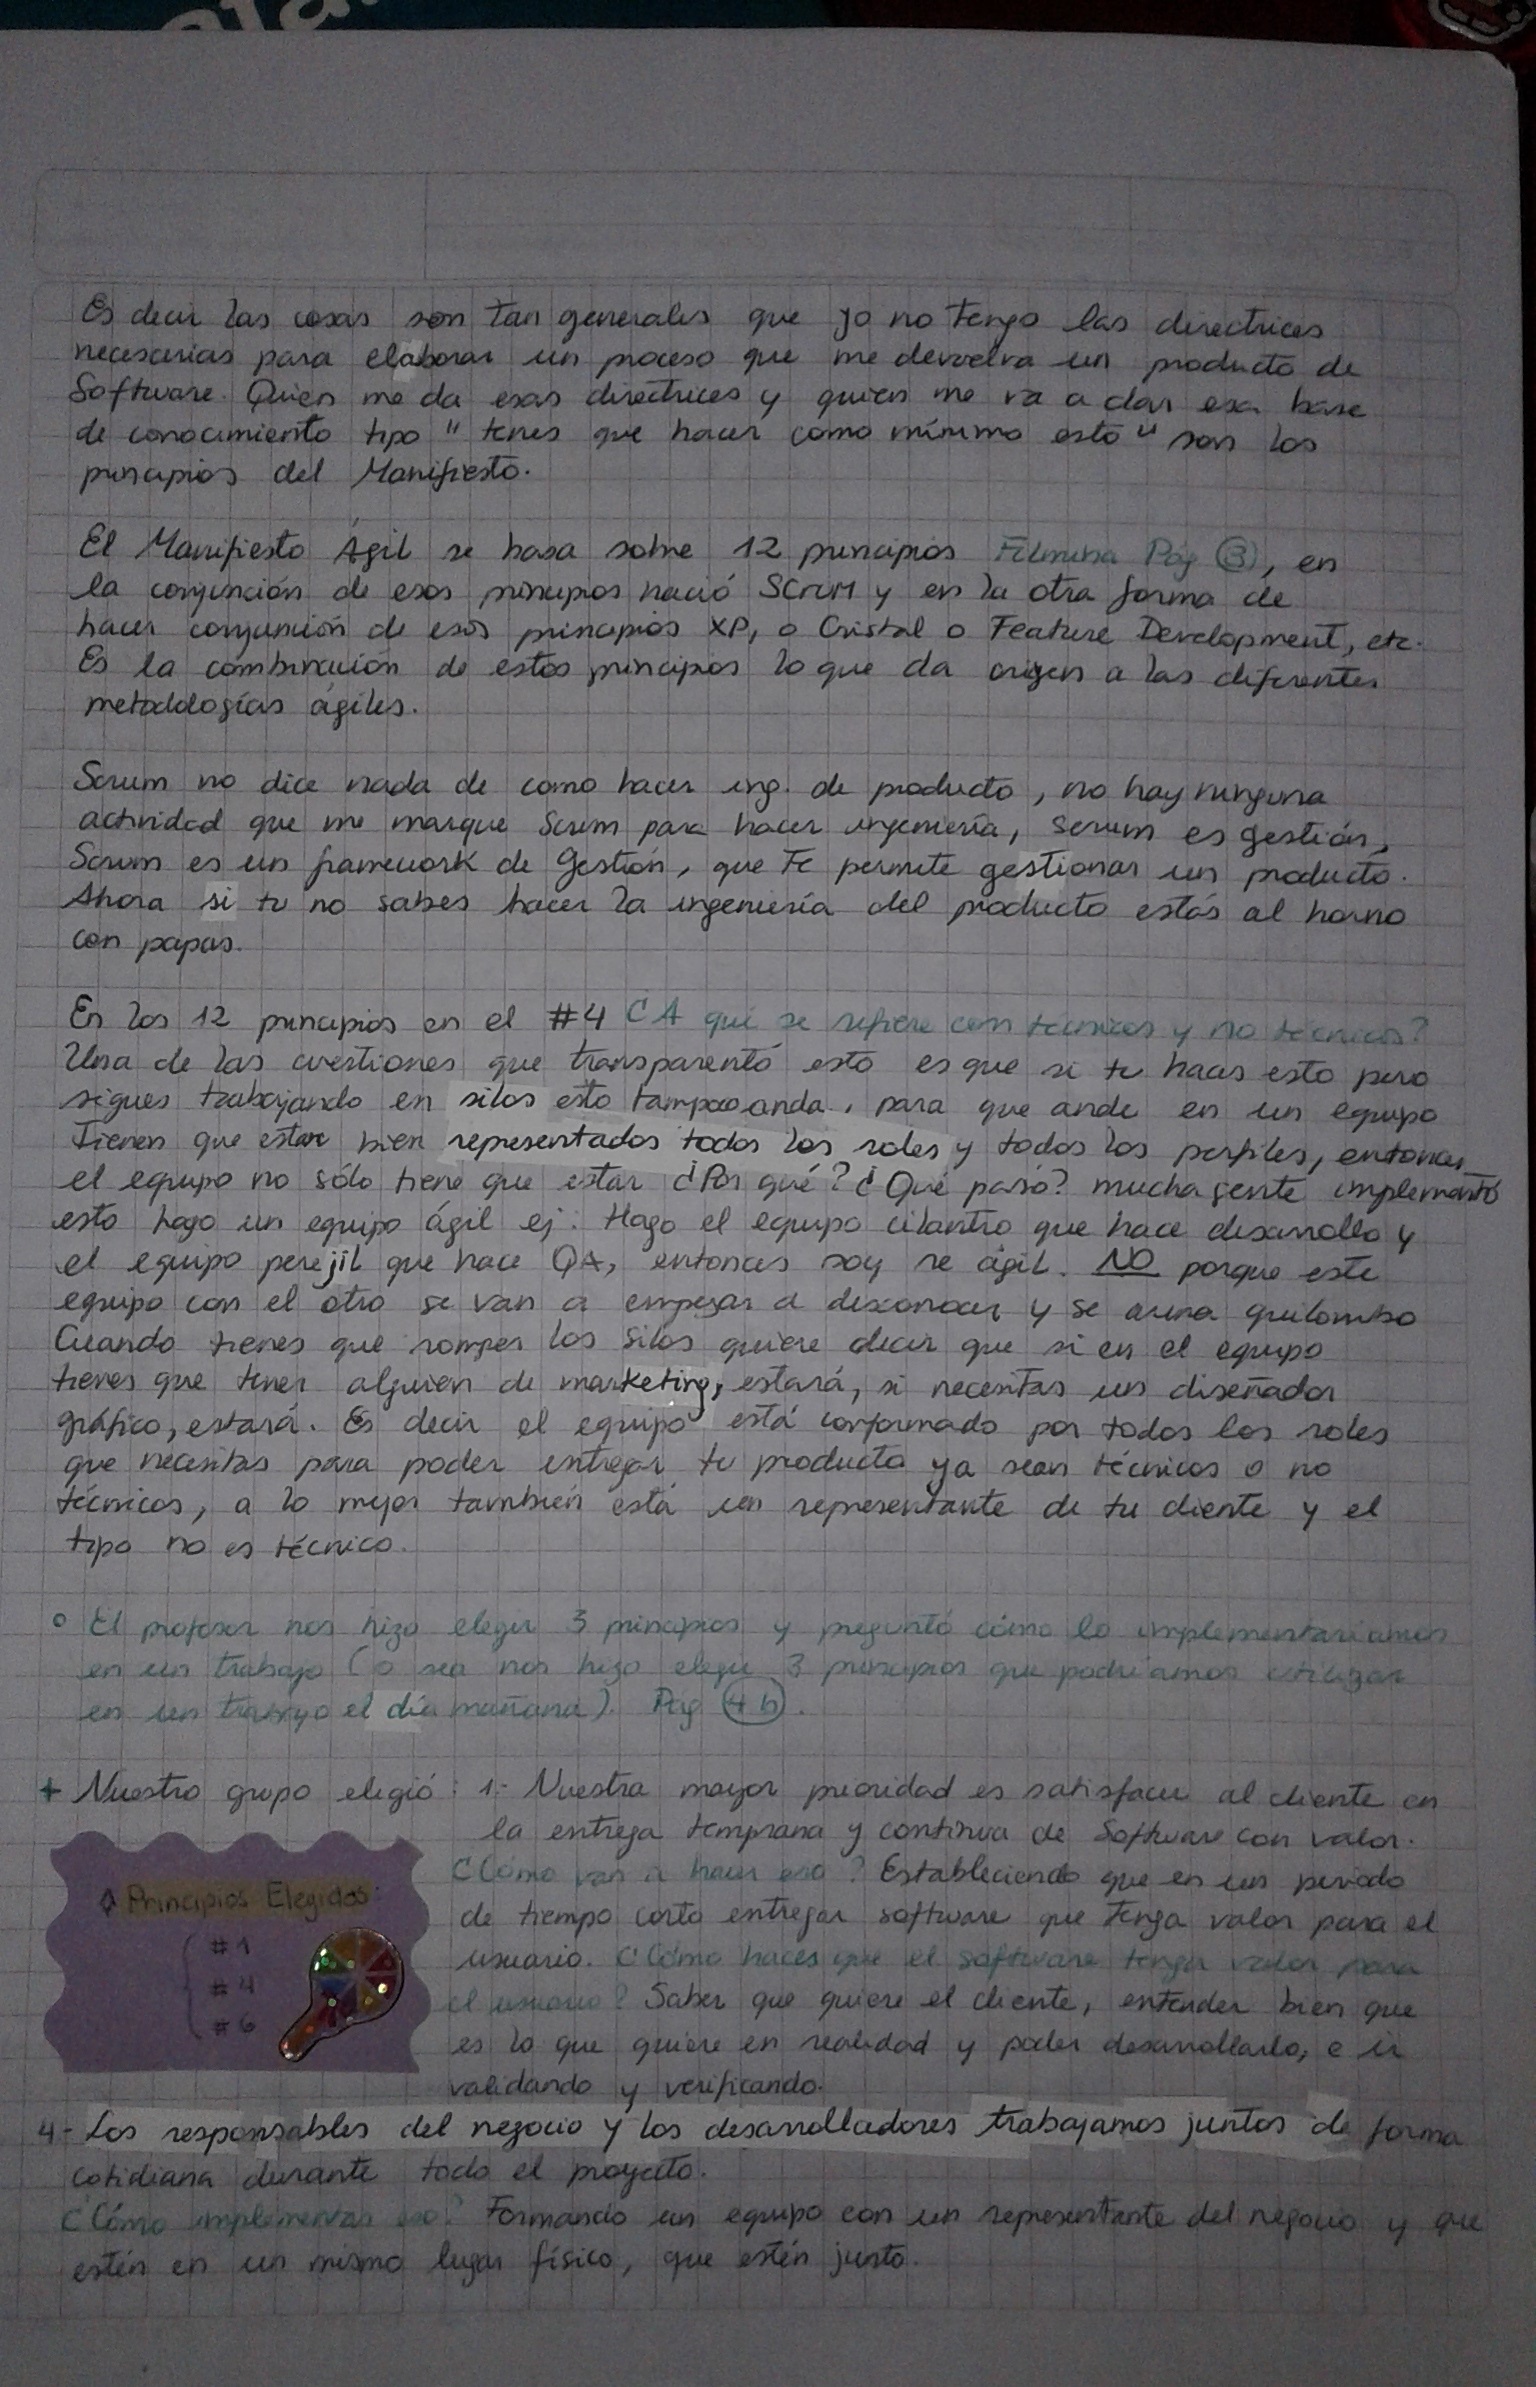 Es decir las cosas son tan generales que yo no tengo las directrices
necesarias para elaborar un proceso que me devuelva un producto de
Software. Quien me da esas directrices y quien me va a dar esa base
de conocimiento tipo "tenes que hacer como mínimo esto" son los
principios del Manifiesto.
El Manifiesto Ágil se basa sobre 12 principios Filmina Pág 3, en
la conjunción de esos principios nació SCRUM y en la otra forma de
hacer conjunción de esos principios XP, o Cristal o Feature Development, etc.
Es la combinación de estos principios lo que da origen a las diferentes
metodologías ágiles.
Scrum no dice nada de como hacer ing. de producto, no hay ninguna
actividad que me marque Scrum para hacer ingeniería, Scrum es gestión,
Scrum es un framework de Gestión, que te permite gestionar un producto.
Ahora si tu no sabes hacer la ingeniería del producto estás al horno
con papas.
En los 12 principios en el #4 ¿A qué se refiere con técnicos y no técnicos?
Una de las cuestiones que transparentó esto es que si tu haces esto pero
sigues trabajando en silos esto tampoco anda, para que ande en un equipo
Tienen que estar bien representados todos los roles y todos los perfiles, entonces
el equipo no sólo tiene que estar ¿Por qué? ¿Qué pasó? mucha gente implementó
esto hago un equipo ágil ej: Hago el equipo cilantro que hace desarrollo y
el equipo perejil que hace QA, entonces soy re ágil. NO porque este
equipo con el otro se van a empezar a desconocer y se arma quilombo
Cuando tienes que romper los silos quiere decir que si en el equipo
tienes que tener alguien de marketing, estará, si necesitas un diseñador
gráfico, estará. Es decir el equipo está conformado por todos los roles
que necesitas para poder entregar tu producto ya sean técnicos o no
técnicos, a lo mejor también está un representante de tu cliente y el
tipo no es técnico.
○ El profesor nos hizo elegir 3 principios y preguntó cómo lo implementaríamos
en un trabajo (o sea nos hizo elegir 3 principios que podríamos utilizar
en un trabajo el día mañana). Pág 4b.
+ Nuestro grupo eligió: 1- Nuestra mayor prioridad es satisfacer al cliente en
la entrega temprana y continua de Software con valor.
¿Cómo van a hacer eso? Estableciendo que en un periodo
de tiempo corto entregar software que tenga valor para el
usuario. ¿Cómo haces que el software tenga valor para
el usuario? Saber que quiere el cliente, entender bien que
es lo que quiere en realidad y poder desarrollarlo, e ir
validando y verificando.
Principios Elegidos:
#1
#4
#6
4- Los responsables del negocio y los desarrolladores trabajamos juntos de forma
cotidiana durante todo el proyecto.
¿Cómo implementas eso? Formando un equipo con un representante del negocio y que
estén en un mismo lugar físico, que estén junto.